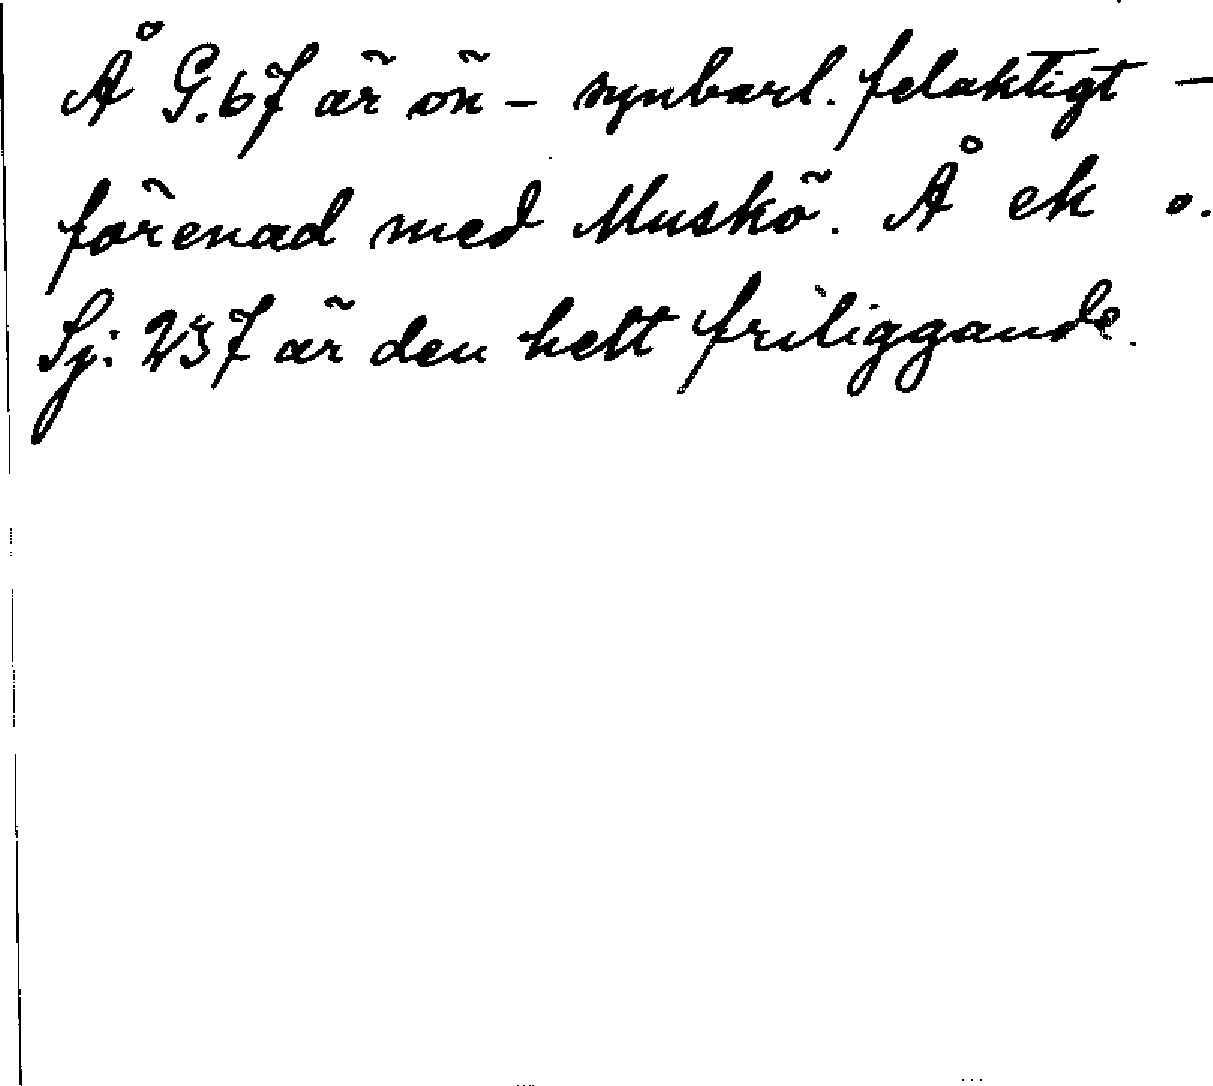 Å G.67 är ön – synbarl. felaktigt –
förenad med Muskö. Å ek o.
Sj: 237 är den helt friliggande.